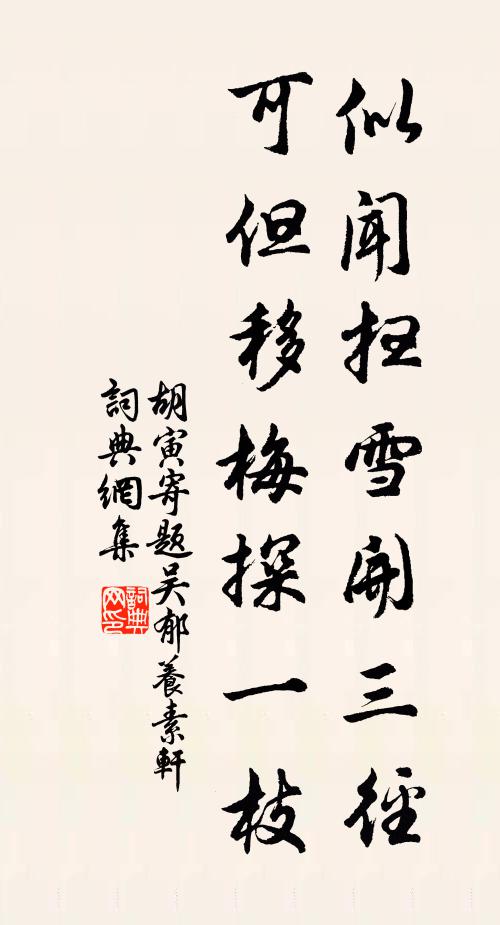 似闻扫雪开三徑
可但移梅探一枝
胡寅寄題吴郁養素軒
詞典網集
詞典网印